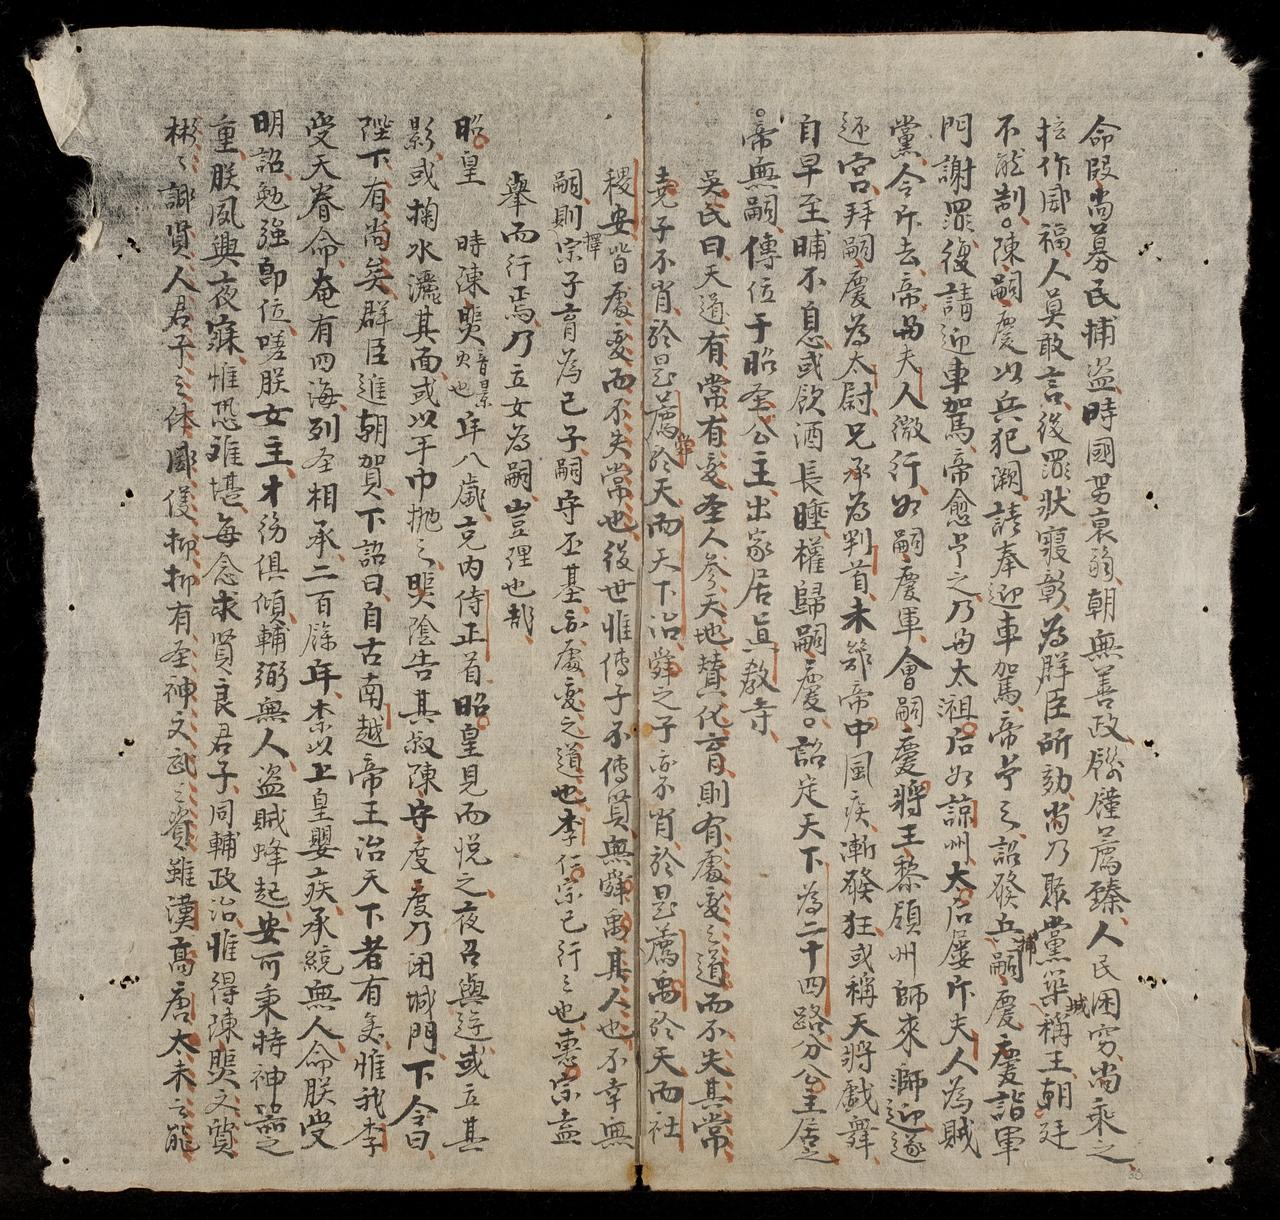 命叚尚募民捕盗時國勢衰弱朝無善政饑饉薦臻人民困穷尚乘之
拉作威福人莫敢言後罪狀寢彰為群臣所劾尚乃聚黨築城稱王朝廷
不能制。陳嗣慶以兵犯闕請奉迎車駕帝步之詔發兵捕嗣慶慶詣軍
門謝罪復請迎車加駕帝愈步之乃与太祖后如諒州太后屢斥夫人為賊
黨令斥去帝与夫人微行如嗣慶軍會嗣慶將王黎領州師來瀕迎遂
还宮拜嗣慶為太尉兄承為判首未幾帝中風疾漸發狂或稱天將戲舞
自早至晡不息或飲酒長睡權歸嗣慶。詔定天下為二十四路分公主居之
帝無嗣傳位于昭圣公主出家居真教寺
吳氏曰天道有常有变圣人参天地贊化育則有處变之道而不失其常
堯子不肖於是薦舜於天而天下治舜之子亦不肖於是薦禹於天而社
稷安皆處变而不失常也後世惟傳子不傳賢無舜禹其人也不幸無
嗣則擇宗子育為己子嗣守丕基亦處变之道也李仁宗已行之也惠宗盍
舉而行焉乃立女為嗣豈理也哉
昭皇 時陳煚音景火也年八歲充內侍正首昭皇見而悦之夜召與遊或立其
影或掬水灑其面或以手巾抛之煚陰告其叔陳守度度乃闭城門下令曰
陛下有尚矣群臣進朝賀下詔曰自古南越帝王治天下者有矣惟我李
受天眷命奄有四海列圣相承二百餘年柰以上皇嬰疾承統無人命朕受
明詔勉強即位嗟朕女主才彷俱傾輔弼無人盗賊蜂起安可秉持神器之
重朕夙興夜寐惟恐难堪每念求賢良君子同輔政治惟得陳煚文質
彬々誠賢人君子之体威儀抑抑有圣神文武之資雖漢高唐太未之能